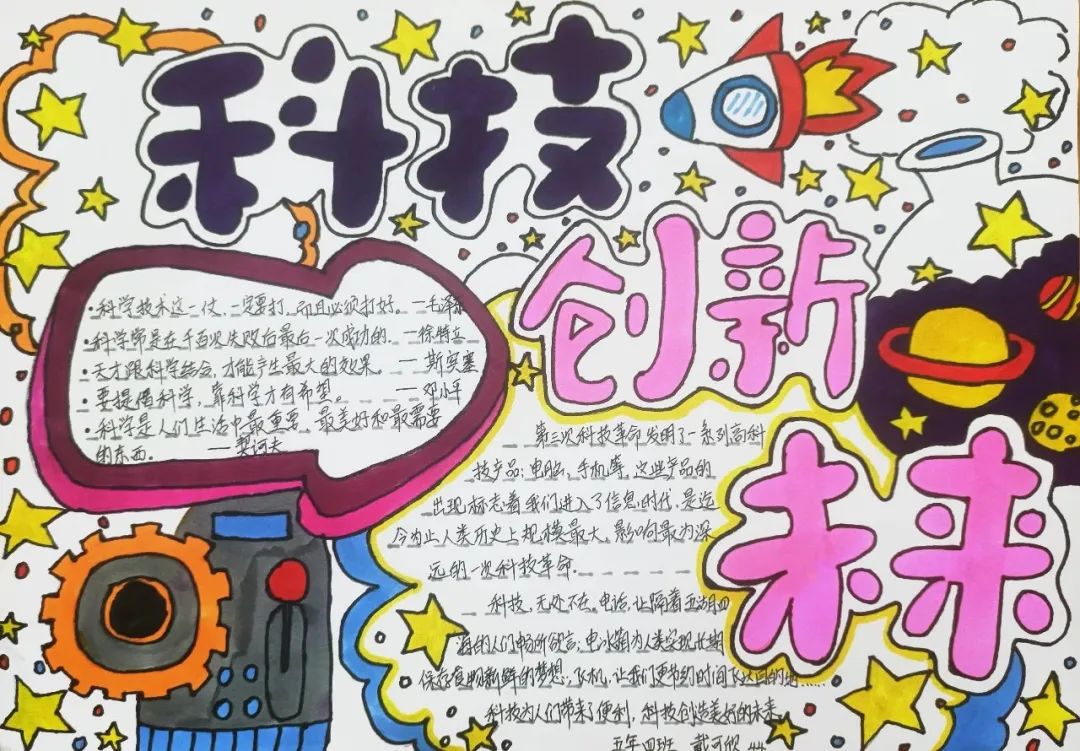 科技
创新
未来
·科学技术这一仗,一定要打,而且必须打好。—毛泽东
科学常是在千百次失败后最后一次成功的.—徐特立
·天才跟科学结合,才能产生最大的效果。—斯宾塞
·要提倡科学,靠科学才有希望。—邓小平
·科学是人们生活中最重要、最美好和最需要
的东西.—契诃夫
第三次科技革命发明了一系列高科
技产品:电脑、手机等,这些产品的
出现标志着我们进入了信息时代,是迄
今为止人类历史上规模最大、影响最为深
远的一次科技革命.
科技,无处不在。电话,让隔着五湖四
海的人们畅所欲言;电冰箱为人类实现长期
保存食物新鲜的梦想;飞机,让我们更节约时间飞达目的地……
科技为人们带来了便利,科技创造美好的未来。
五年四班 戴可欣